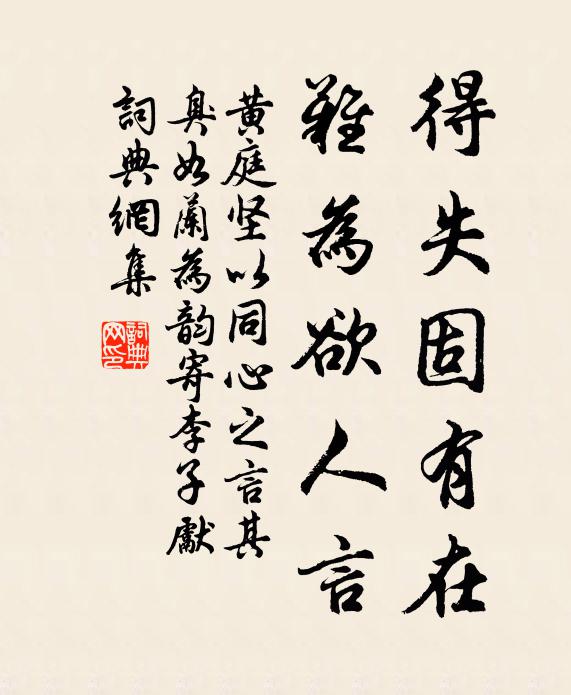 得失固有在
難為欲人言
黄庭坚以同心之言其
臭如蘭為韵寄李子獻
詞典網集
詞典网印